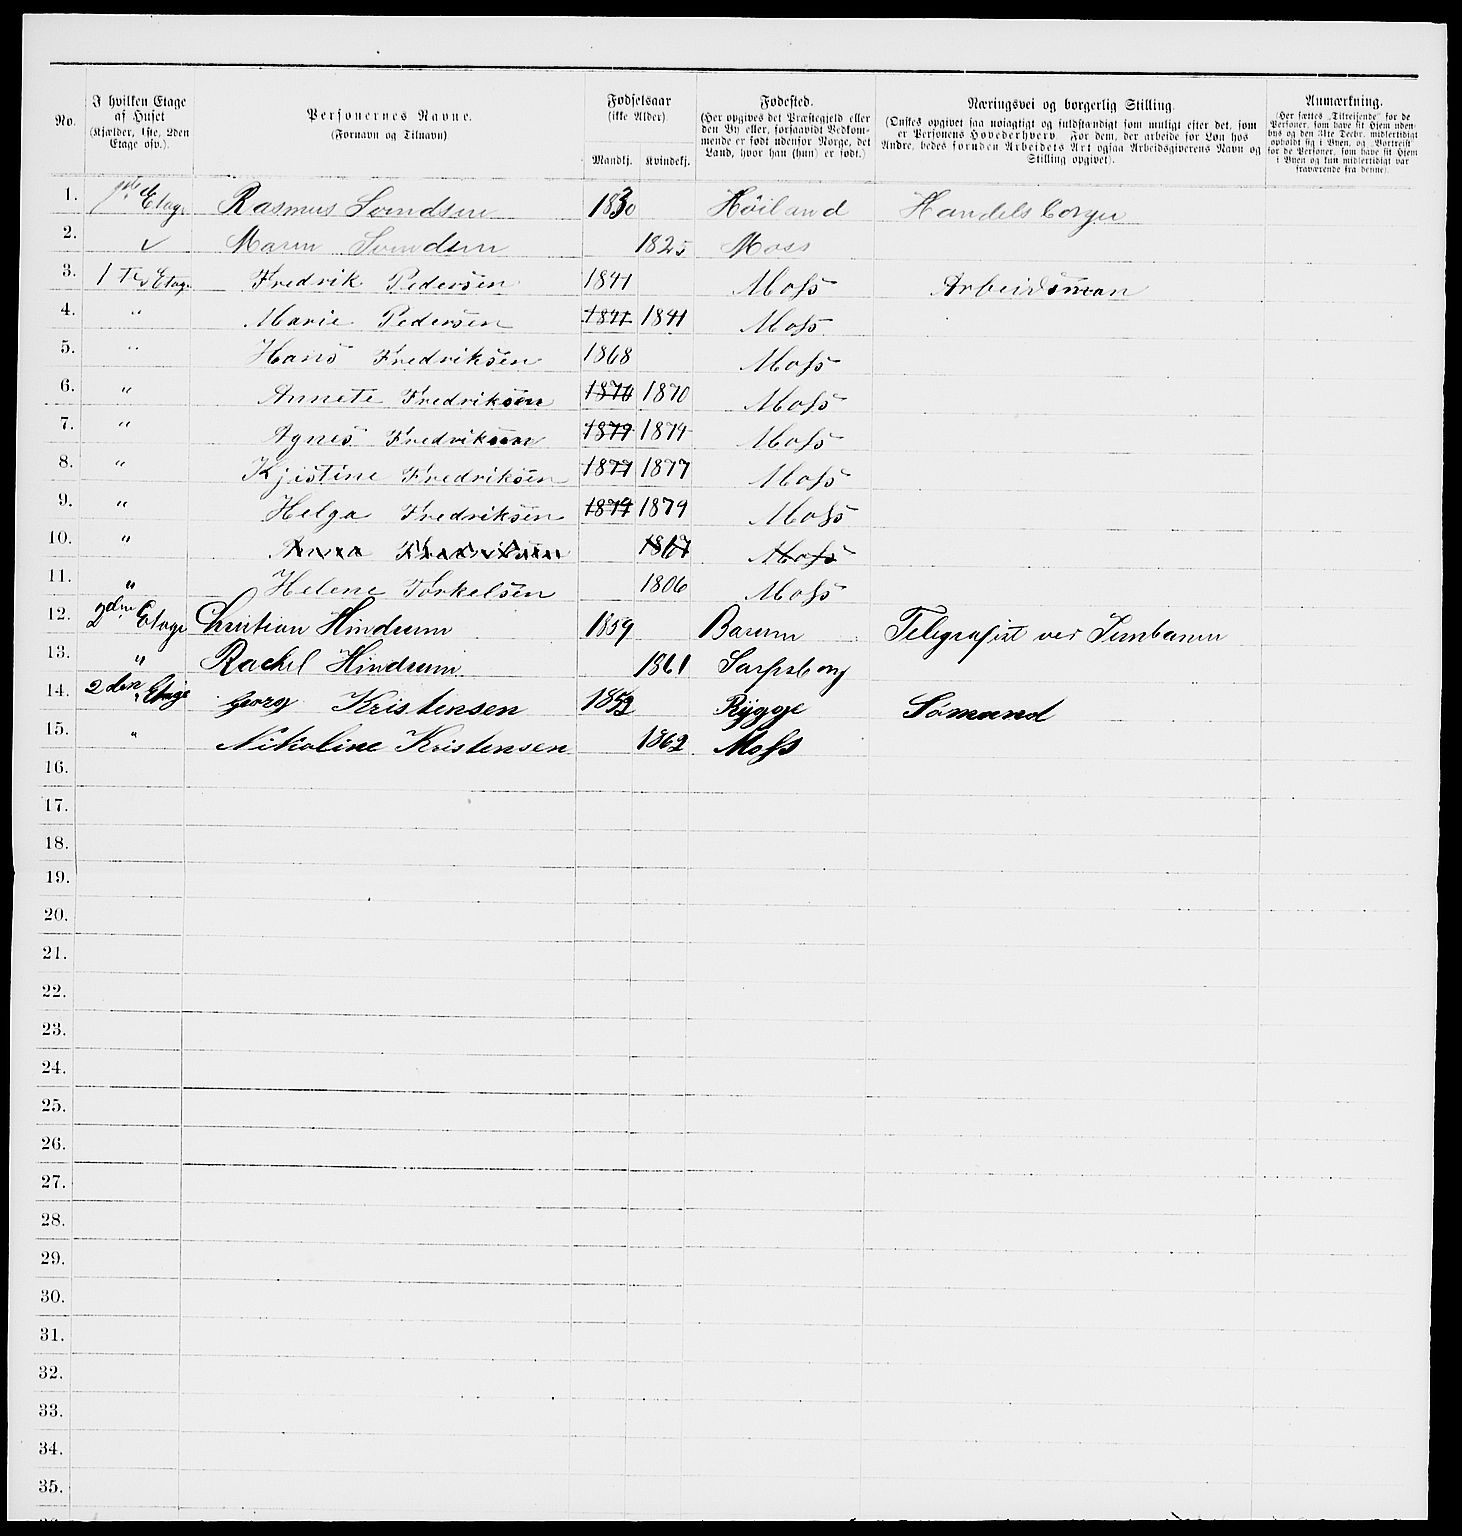 No. | I hvilken Etage af Huset (Kjælder, 1ste, 2den Etage osv.). | Personernes Navne. (Fornavn og Tilnavn) | Fødselsaar (ikke Alder). Mandkj. | Kvindekj. | Fødested. (Her opgives det Præstegjeld eller den By eller, forsaavidt Vedkommende er født udenfor Norge, det Land, hvor han (hun) er født.) | Næringsvei og borgerlig Stilling. (Ønskes opgivet saa nøiagtigt og fuldstændigt som muligt efter det, som er Personens Hovederhverv. For dem, der arbeide for Løn hos Andre, bedes foruden Arbeidets Art ogsaa Arbeidsgiverens Navn og Stilling opgivet). | Anmærkning. (Her sættes „Tilreisende" for de Personer, som have sit Hjem udenbys og den 31te Decbr. midlertidigt opholdt sig i Byen, og „Bortreist" for de Personer, som have sit Hjem i Byen og kun midlertidigt var fraværende fra denne).
1. Etage Rasmus Svendsen 1830 Høiland Handelsborger
2. Maren Svendsen 1825 Moss
3. 1ste Etage Fredrik Pedersen 1841 Moss Arbeidsman
4. " Marie Pedersen 1841 1841 Moss
5. " Hans Fredriksen 1868 Moss
6. " Annete Fredriksen 1870 1870 Moss
7. " Agnes Fredriksen 1874 1874 Moss
8. " Kjistine Fredriksen 1877 1877 Moss
9. " Helga Fredriksen 1879 1879 Moss
10. " Anna Fredriksen 1867 Moss
11. " Helene Torkelsen 1806 Moss
12. 2den Etage Christian Hindrum 1859 Barum Telegrafist ved Jernbanen
13. " Rachel Hindrum 1861 Sarpsborg
14. 2den Etage Georg Kristensen 1852 Rygge Sømand
15. " Nikoline Kristensen 1862 Moss
16.
17.
18.
19.
20.
21.
22.
23.
24.
25.
26.
27.
28.
29.
30.
31.
32.
33.
34.
35.